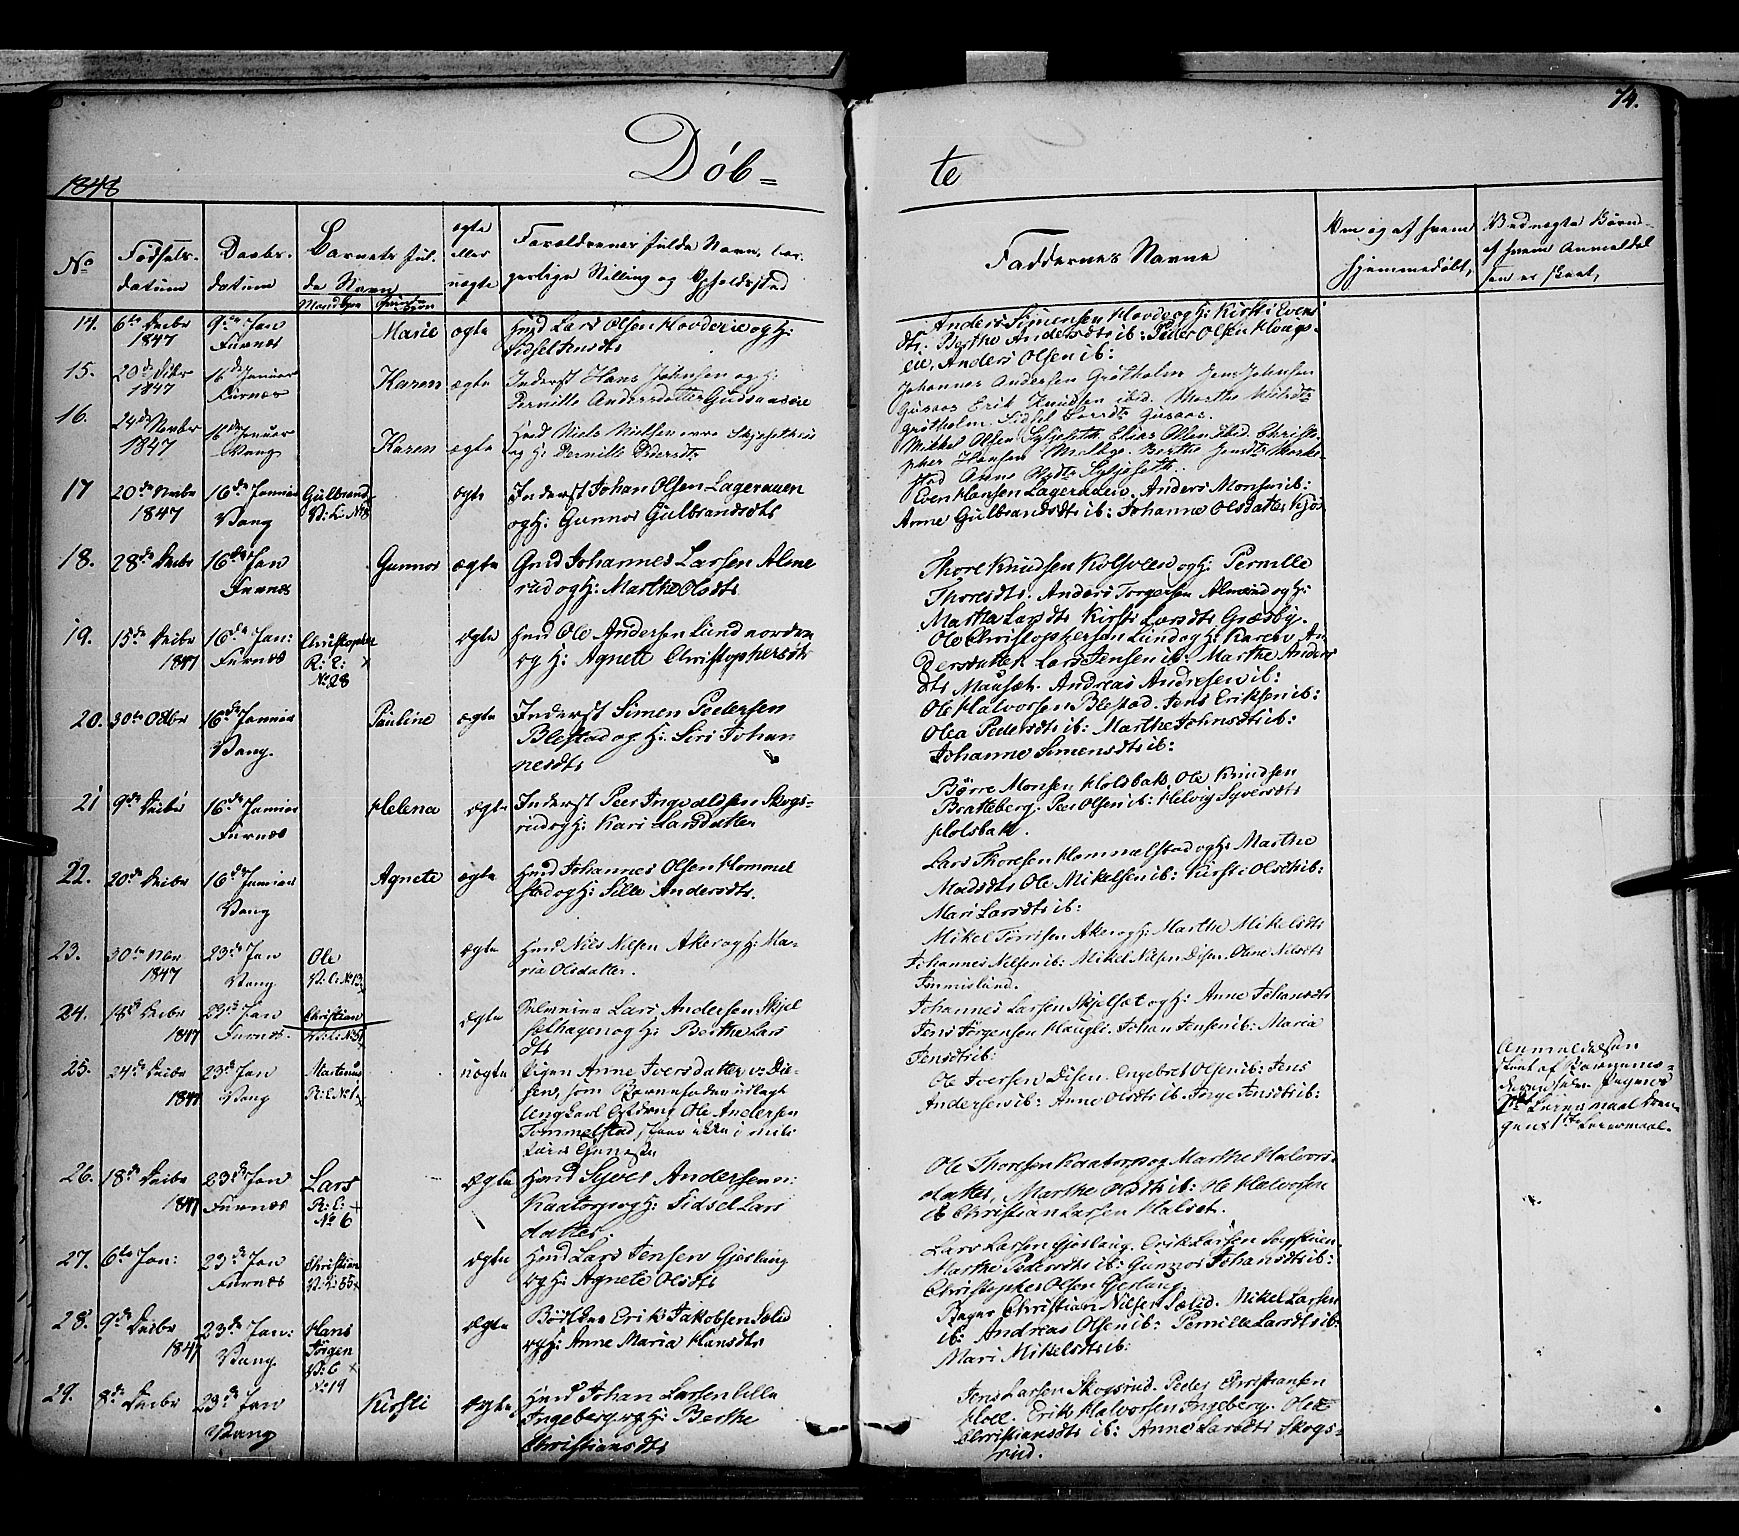 74.
1848
Døb= te
No
Fødsels-
datum
Daabs-
datum
Barnets ful-
de Navn
Mandkjøn
Qvindekjøn
ægte
eller
uægte
Forældrenes fulde Navn, bor-
gerlige Stilling og Opholdssted
Faddernes Navne
Om og af hvem
hjemmedøbt,
Uæg­te Børn
af hvem Anmeldel
sen er skeet,
14. 6te Decbr 1847
9de Jan Furnæs
Marie
ægte
Husmd Lars Olsen Hovdeeie og H:
Sidsel Jensdtr
Anders Simensen Hovde og H: Kirsti Evens
dtr. Berthe Andersdtr ib: Peder Olsen Hougs-
eie, Anders Olsen ib:
15. 20de Decbr 1847
16de Januar Furnæs
Karen
ægte
Inderst Hans Johnsen og H:
Pernille Andersdatter
Johannes Andersen Grøtholm Jens Johnsen
Erik Knudsen ibid. Marthe
Grøtholm. Sidsel
16. 24de Novbr 1847
16de Januar Vang
Karen
ægte
Husmd Niels Nielsen
og H: Pernille Pedersdtr
Mikkel Olsen Elias Olsen ibid. Christo-
pher Hansen Berthe Jensdtr
stad Anne Olsdtr
17 20de Novbr 1847
16de Januar Vang
Gulbrand
V: C: No 8
ægte
Inderst Johan Olsen Lageraaen
og H: Gunnor Gulbrandsdtr
Even Hansen Lageraaen. Anders Monsen ib:
Anne Gulbrandsdtr ib: Johanne Olsdatter Kjos
18. 28de Decbr
16de Jan Furnæs
Gunnor
ægte
Gmd Johannes Larsen Alme
rud og H: Marthe Olsdtr
Thore Knudsen Kolsveen og H: Pernille
Thoresdtr. Anders Torgersen Almerud og H:
Martha Larsdtr Kirsti Larsdtr Græsby.
19. 15de Decbr 1847
16de Jan: Furnæs
Christopher
R: C:
No 28
ægte
Husmd Ole Andersen Lund nordre
og H: Agnett Christophersdtr
Ole Christophersen Lund og H: Karen An
dersdatter Lars Jensen ib: Marthe Anders
dtr Mausæt. Andreas Andresen ib:
20. 30te Octbr
16de Januar Vang.
Pauline
ægte
Inderst Simen Pedersen
Blestad og H: Siri Johan
nesdtr
Ole Halvorsen Blestad. Jens Eriksen ib:
Olea Pedersdtr ib: Marthe Johnsdtr ib:
Johanne Simensdtr ib:
21 9de Decbr
16de Januar Furnæs
Helena
ægte
Inderst Peer Ingvaldsen Skogs-
rud og H: Kari Larsdatter
Børre Monsen Holsbak Ole Knudsen
Bratteberg. Peer Olsen ib: Helvig Syversdtr
Holsbak.
22. 20de Decbr
16de Januar Vang
Agnete
ægte
Husmd Johannes Olsen Hommel
stad og H: Sille Andersdtr.
Lars Thoresen Hommelstad og H: Marthe
Madsdtr Ole Mikelsen ib: Kirsti Olsdtr ib:
Mari Larsdtr ib:
23. 30te Nbr 1847
23de Jan Vang
Ole
V: C: No 13
ægte
Husmd Nils Nilsen Aker og H: Ma-
ria Olsdatter.
Mikel Aker og H: Marthe Mikelsdtr
Johannes Nilsen ib: Mikel Nilsen Disen. Olene Nilsdtr
24. 18de Decbr 1847
23de Jan Furnæs.
Christian
ægte
Lars Andersen Skjel
sethagen og H: Berthe Lars
dtr
Johannes Larsen Skjelset og H: Anne Johansdtr
Jens Jørgensen Haugli. Johan Jensen ib: Maria
Jensdtr ib:
25. 24de Decbr 1847
23de Jan Vang
Martinus
R: C No 1
uægte
Pigen Anne Iversdatter v: Di-
sen, som Barnefader udlagt
Ungkarl Ole Andersen
Tommelstad, ikke i mili
tair Tjeneste
Ole Iversen Disen. Engebret Olsen ib: Jens
Andersen ib: Anne Olsdtr ib. Inge Jensdtr ib:
Anmeldelsen
skeet af Barnets
Pigens
1ste Leiermaal Dren-
gens 1ste Leiermaal.
26. 18de Decbr 1847
23de Jan Furnæs
Lars
R: C:
No 6
ægte
Husmd Syver Andersen
Kaatorp og H: Sidsel Lars
datter
Ole Thoresen Kaatorp og Marthe Halvors-
datter, Marthe Olsdtr ib: Ole Halvorsen
ib Christian Larsen Halset.
27. 6te Jan:
23de Jan Furnæs
Christian
ægte
Husmd Lars Jensen Gjeslaug
og H: Agnete Olsdtr
Lars Larsen Gjeslaug. Erik Larsen
Marthe Pedersdtr ib: Gunnor Johansdtr ib:
Christopher Olsen Gjeslaug
28. 9de Decbr 1847
23de Jan: Vang
Hans
Jørgen
V: C
No 19
ægte
Erik Jakobsen Sælid
og H: Anne Maria Hansdtr
Christian Nilsen Sælid. Mikel Larsen
ib: Andreas Olsen ib: Pernille Larsdtr ib:
Mari Mikelsdtr ib:
29. 8de Decbr
23de Jan Vang
Kirsti
ægte
Husmd Johan Larsen lille
Ingeberg og H: Berthe
Christiansdtr
Jens Larsen Skogsrud. Peder Christiansen
Hoel. Erik Halvorsen Ingeberg. Olea
Christiansdtr ib: Anne Larsdtr Skogs-
rud.